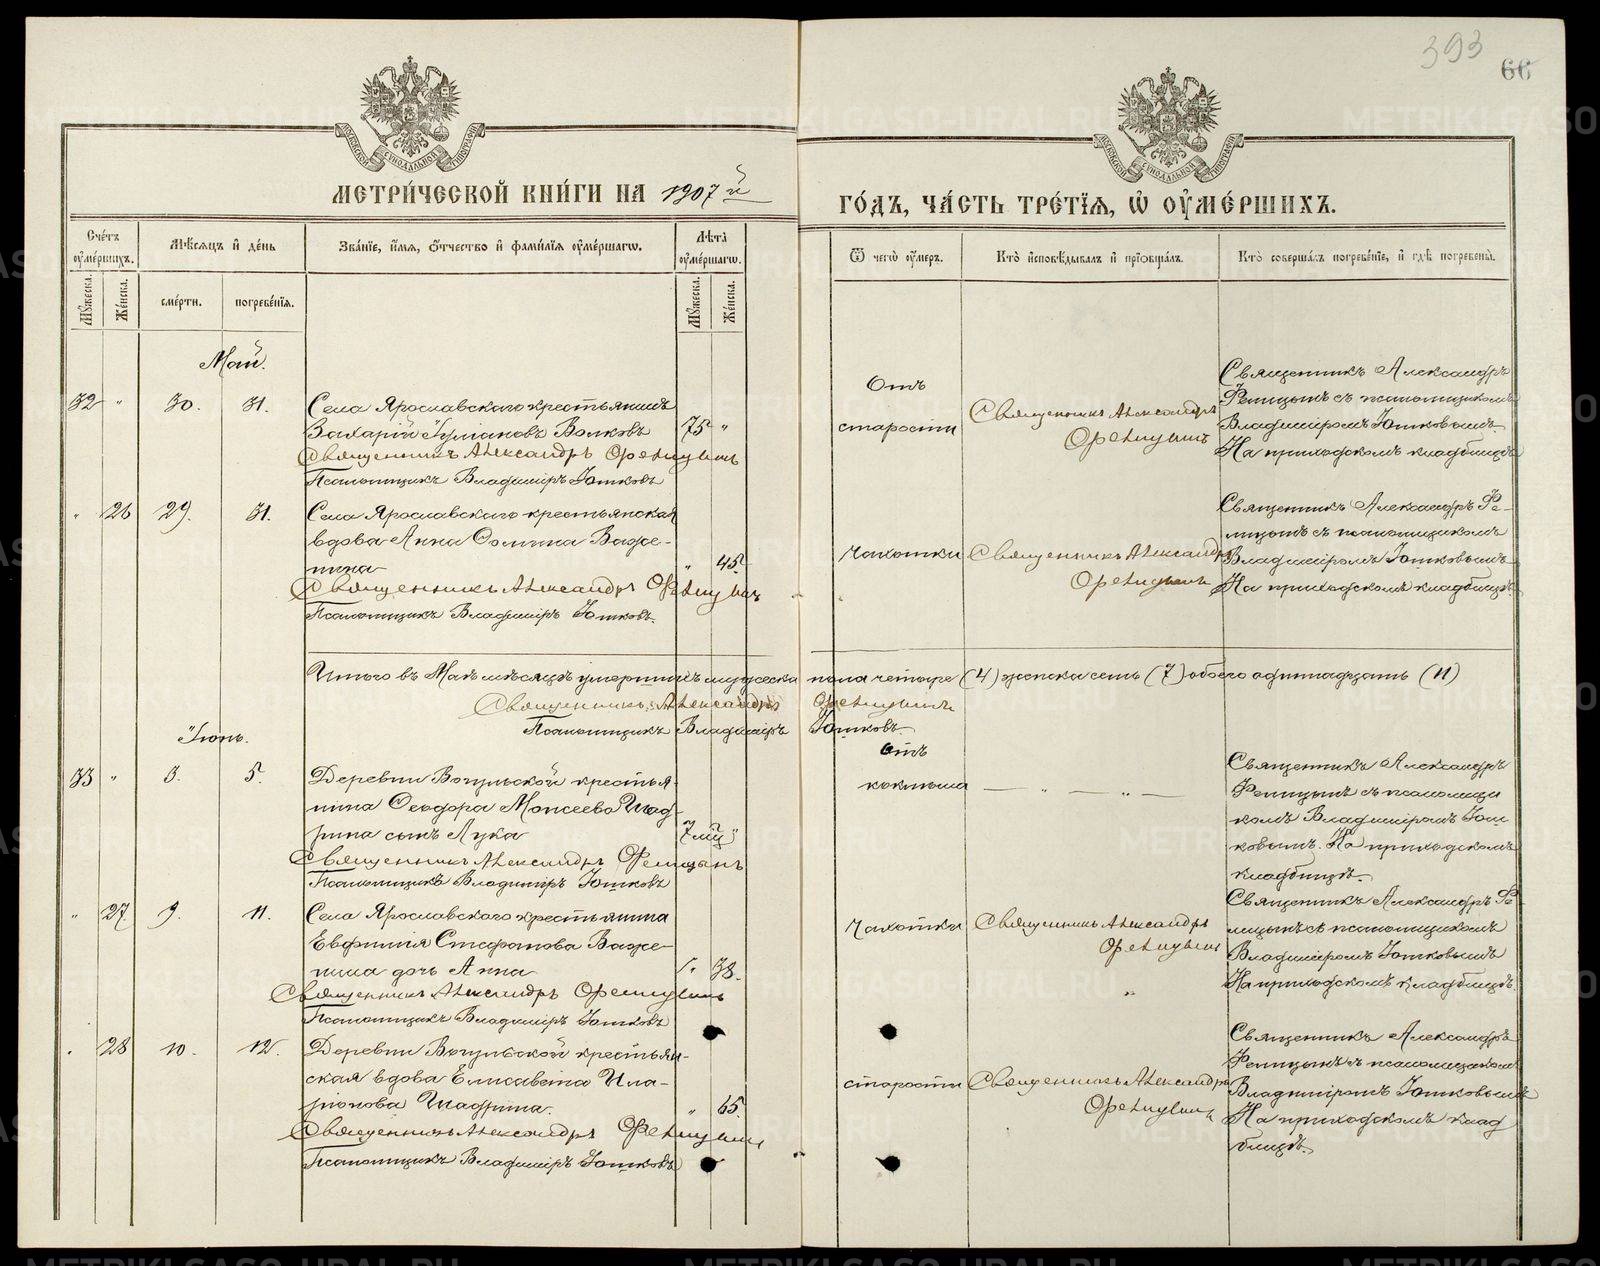 393
66
МОСКОВСКОЙ СИНОДАЛЬНОЙ ТИПОГРАФІИ
МОСКОВСКОЙ СИНОДАЛЬНОЙ ТИПОГРАФІИ
МЕТРИ́ЧЕСКОЙ КНИ́ГИ НА 1907й
ГО́ДЪ, ЧА́СТЬ ТРЕ́ТІЯ, Ѽ ОУМЕ́РШИХЪ.
Сче́тъ оуме́ршихъ.
Мꙋ́жеска.
Же́нска.
Мѣ́сяцъ и де́нь
сме́рти.
погребе́нія.
Зва́ніе, и́мя, о́тчество и фами́лія оуме́ршагѡ.
Лѣ́та оуме́ршагѡ.
Мꙋ́жеска.
Же́нска.
Ѿ чегѡ̀ оу́меръ.
Кто̀ исповѣ́дывалъ и пріобща́лъ.
Кто̀ соверша́лъ погребе́ніе, и гдѣ̀ погребены̀.
Май.
32 " 30. 31.
Села Ярославскаго крестьянинъ
Захарій Іуліановъ Волковъ 75 "
Священникъ Александръ Фелицынъ
Псаломщикъ Владиміръ Іошковъ
Отъ
старости
Священникъ Александръ
Фелицынъ
Священникъ Александръ
Фелицынъ съ псаломщикомъ
Владиміромъ Іошковымъ.
На приходскомъ кладбищѣ
" 26 29. 31.
Села Ярославскаго крестьянская
вдова Анна Ѳомина Важе-
нина " 45.
Священникъ Александръ Фелицынъ
Псаломщикъ Владиміръ Іошковъ.
Чахотки
Священникъ Александръ
Фелицынъ
Священникъ Александръ Фе-
лицынъ съ псаломщикомъ
Владиміромъ Іошковымъ.
На приходскомъ кладбищѣ.
Итого въ Маѣ мѣсяцѣ умершихъ мужеска пола четыре (4) женска семь (7) обоего одиннадцать (11)
Священникъ Александръ Фелицынъ
Псаломщикъ Владиміръ Іошковъ.
Іюнь.
33 " 3. 5.
Деревни Вогульской крестья-
нина Ѳеодора Моисеева Шад-
рина сынъ Лука 7 мц. "
Священникъ Александръ Фелицынъ
Псаломщикъ Владиміръ Іошковъ
Отъ
коклюша
— " — " —
Священникъ Александръ
Фелицынъ съ псаломщи
комъ Владиміромъ Іош
ковымъ. На приходскомъ
кладбищѣ.
" 27. 9. 11.
Села Ярославскаго крестьянина
Евфимія Стефанова Важе-
нина дочь Анна " 38.
Священникъ Александръ Фелицынъ
Псаломщикъ Владиміръ Іошковъ
Чахотки
Священникъ Александръ
Фелицынъ
Священникъ Александръ Фе
лицынъ съ псаломщикомъ
Владиміромъ Іошковымъ
На приходскомъ кладбищѣ.
" 28 10. 12.
Деревни Вогульской крестьян-
ская вдова Елисавета Ила-
ріонова Шадрина. " 65.
Священникъ Александръ Фелицынъ
Псаломщикъ Владиміръ Іошковъ
старости
Священникъ Александръ
Фелицынъ
Священникъ Александръ
Фелицынъ съ псаломщикомъ
Владиміромъ Іошковымъ
На приходскомъ клад
бищѣ.
METRIKI.GASO-URAL.RU